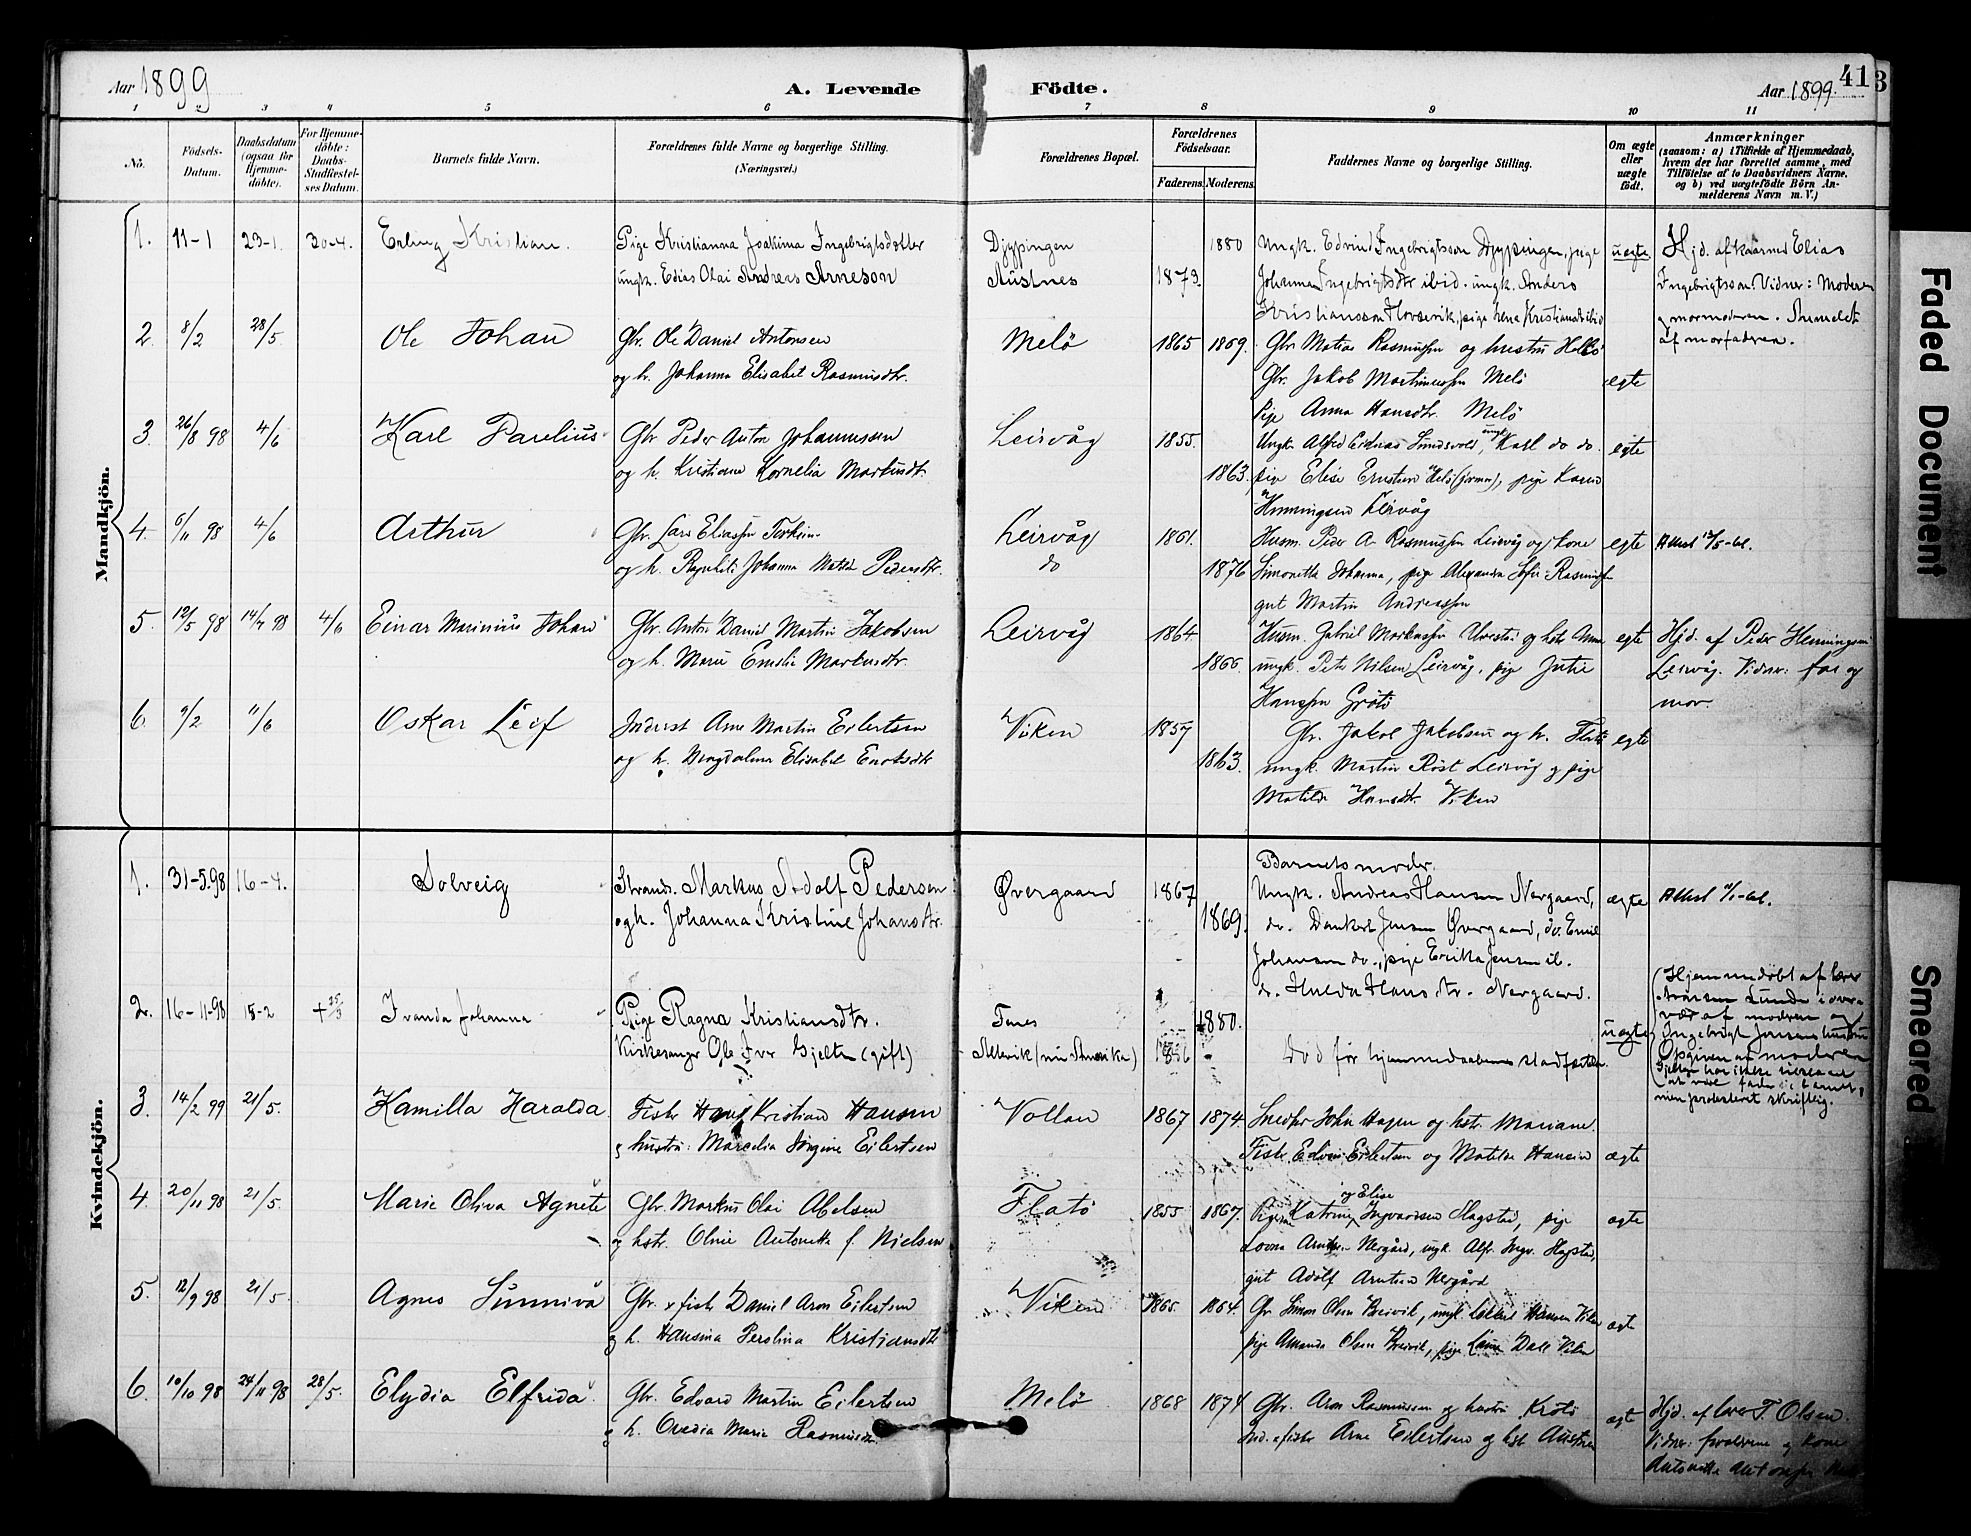 Aar 1899
A. Levende
Födte.
Aar 1899.
413
1 2 3 4 5 6 7 8 9 10 11
No.
Födsels-
Datum.
Daabsdatum
(ogsaa for
Hjemme-
döbte).
For Hjemme-
döbte:
Daabs-
Stadfæstel-
ses Datum.
Barnets fulde Navn.
Forældrenes fulde Navne og borgerlige Stilling.
(Næringsvei.)
Forældrenes Bopæl.
Forældrenes
Födselsaar.
Faderens. Moderens.
Faddernes Navne og borgerlige Stilling.
Om ægte
eller
uægte
födt.
Anmærkninger
(saasom: a) i Tilfælde af Hjemmedaab,
hvem der har forrettet samme, med
Tilföielse af to Daabsvidners Navne.
og b) ved uægtefödte Börn An-
melderens Navn m. V.)
Mandkjön.
1. 11-1 23-1. 30-4. Erling Kristian. Pige Kristianna Joakima Ingebrigtsdatter Djypingen 1880 Ungk. Edvind Ingebrigtsson Djypingen, pige uægte Hjd. af Elias
ungk. Edias Olai Andreas Arneson Austnes 1873. Johanna Ingebrigtsdtr ibid. ungk. Anders Ingebrigtsson. Vidner: Moderen
Kristiansson pige Lena Kristiansd ibid og mormoderen. Anmeldt
af morfaderen.
2. 8/2 28/5. Ole Johan Gbr. Ole Daniel Antonsen Melö 1865 1869. Gbr Matias Rasmussen og hustru
og h. Johanna Elisabet Rasmusdtr. Gbr. Jakob Melö ægte
Pige Anna Hansdtr. Melö
3 26/8 98 4/6 Karl Paulius Gbr Peder Anton Johannessen Leirvåg 1855. Ungk. Alfred ungk Karl do do. egte
og h. Kristiane Kornelia Markusdtr. 1863. pige Elise pige Karen
Henningsen Leirvåg
4. 6/11 98 4/6 Arthur Gbr. Lars Eliassen Leirvåg 1861. Husm. Peder A. Rasmussen Leirvåg og kone egte Attest 12/5-61.
og h. Johanna Matilde Pedersdtr. do 1876 Simonette Johanna, pige Alexandra Sofie Rasmussen
gut Martin Andreassen
5. 12/5 98 14/7 98 4/6 Einar Marinius Johan Gbr. Anton Daniel Martin Jakobsen Leirvåg 1864 Husm. Gabriel Markussen og hstr Anna egte Hjd. af Peder Henningsen
og h. Marie Emelie Markusdtr. 1866. ungk. Peter Nilsen Leirvåg, pige Jutie Leirvåg. Vidner: far og
Hanssen Grötö mor
6. 9/2 11/6 Oskar Leif Inderst Arne Martin Eilertsen Viken 1857 Gbr. Jakob Jakobsen og h. Flatö egte
og h. Magdalena Elisabet Enoksdtr 1863. ungk. Martin Röst Leirvåg og pige
Matilde Hansdtr. Viken
Kvindekjön.
1. 31-5.98 16-4. Solveig Strands. Markus Adolf Pedersen Øvergaard 1867 Barnets moder.
og h. Johanna Kristine Johansdtr. 1869. Ungk. Andreas Hansen Nergaard, ægte Attest 11/1-61.
do. Dankert Jensen Øvergaard, do. Emil
Johansen do., pige Erikka Jensen ib.
do. Hulda Hansdtr. Nergaard.
2. 16-11-98 15-2 + 25/3 Ivanda Johanna Pige Ragna Kristiansdtr. Tenes 1880. uægte (Hjemmedøbt af lærer
Kirkesanger Ole Iver Gjelten (gift) (nu Amerika) 1856 Død før hjemmedaabens stadfæstelse
Aronsen Lunde i over-
vær af moderen og
Ingebrigt Jensens hustru
Opgiven av moderen
Gjelten har ikke
at være fader til barnet,
men protesteret skriftlig.
3. 14/2 99 21/5. Kamilla Haralda Fisker Hans Kristian Hansen Vollan 1867 1874 Snedker John Hagen og hstr. Mariane.
og hustru: Marcelia Jörgine Eilertsen Fisker Edvin Eilertsen og Matilde Hansen ægte
4. 20/11 98 21/5. Marie Oliva Agnete Gbr. Markus Olai Abelsen Flatö 1855 1867. Pigerne Katrine og Elise Ingvardsen Hagstad, pige ægte
og hstr. Oline Antonette f. Nielsen Lovna Nergård, ungk. Alfr. Ingv. Hagstad,
gut Adolf Arntsen Nergård
5. 12/9 98 21/5. Agnes Sunnivå Gbr. & fisker Daniel Aron Eilertsen Viken 1865 1864. Gbr Simon Olsen Breivik, ungk. Hansen Viken ægte
og h. Hansina Perolina Kristjansdtr pige Amanda Olsen Breivik, pige Laura Dall Viken
6. 10/10 98 24/11 98 28/5. Elydia Elfrida Gbr. Edvard Martin Eilertsen Melö 1868 1874 Gbr. Aron Rasmussen og hustru ægte Hjd. af Iver T. Olsen.
og h. Ovedia Marie Rasmusdtr. Ind. & fisker Arne Eilertsen og hst. Austnes Vidner: forældrene og kone
Faded Document
Smeared